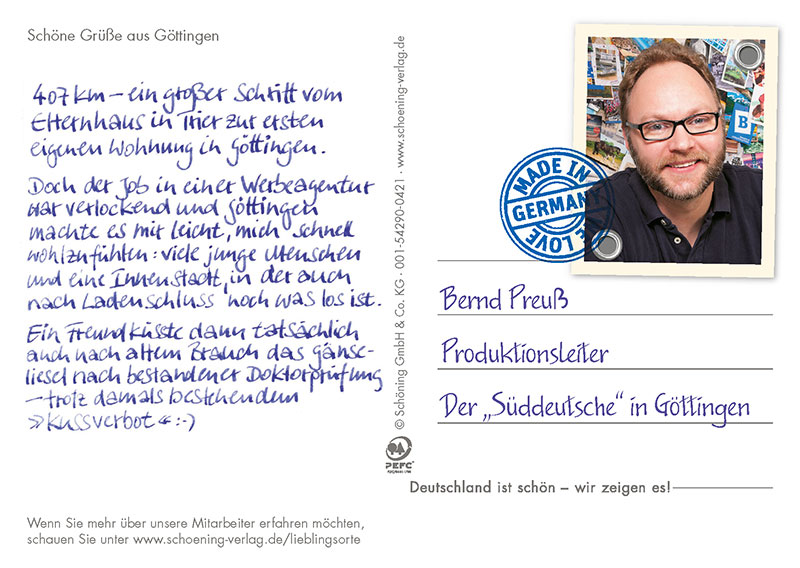 Schöne Grüße aus Göttingen
407 km – ein großer Schritt vom
Elternhaus in Trier zur ersten
eigenen Wohnung in Göttingen.
Doch der Job in einer Werbeagentur
war verlockend und Göttingen
machte es mir leicht, mich schnell
wohlzufühlen: viele junge Menschen
und eine Innenstadt, in der auch
nach Ladenschluss noch was los ist.
Ein Freund küsste dann tatsächlich
auch nach altem Brauch das Gänse-
liesel nach bestandener Doktorprüfung
– trotz damals bestehendem
»Kussverbot« :-)
Wenn Sie mehr über unsere Mitarbeiter erfahren möchten,
schauen Sie unter www.schoening-verlag.de/lieblingsorte
© Schöning GmbH & Co. KG · 001-54290-0421 · www.schoening-verlag.de
PEFC
MADE IN
GERMANY
LOVE
B
Bernd Preuß
Produktionsleiter
Der „Süddeutsche" in Göttingen
Deutschland ist schön – wir zeigen es!